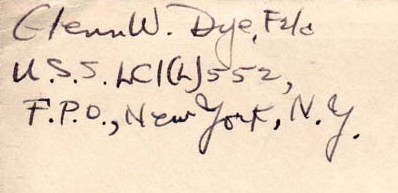 Glenn W. Dye, F2/c
U.S.S. LCI(L) 552,
F.P.O., New York, N.Y.